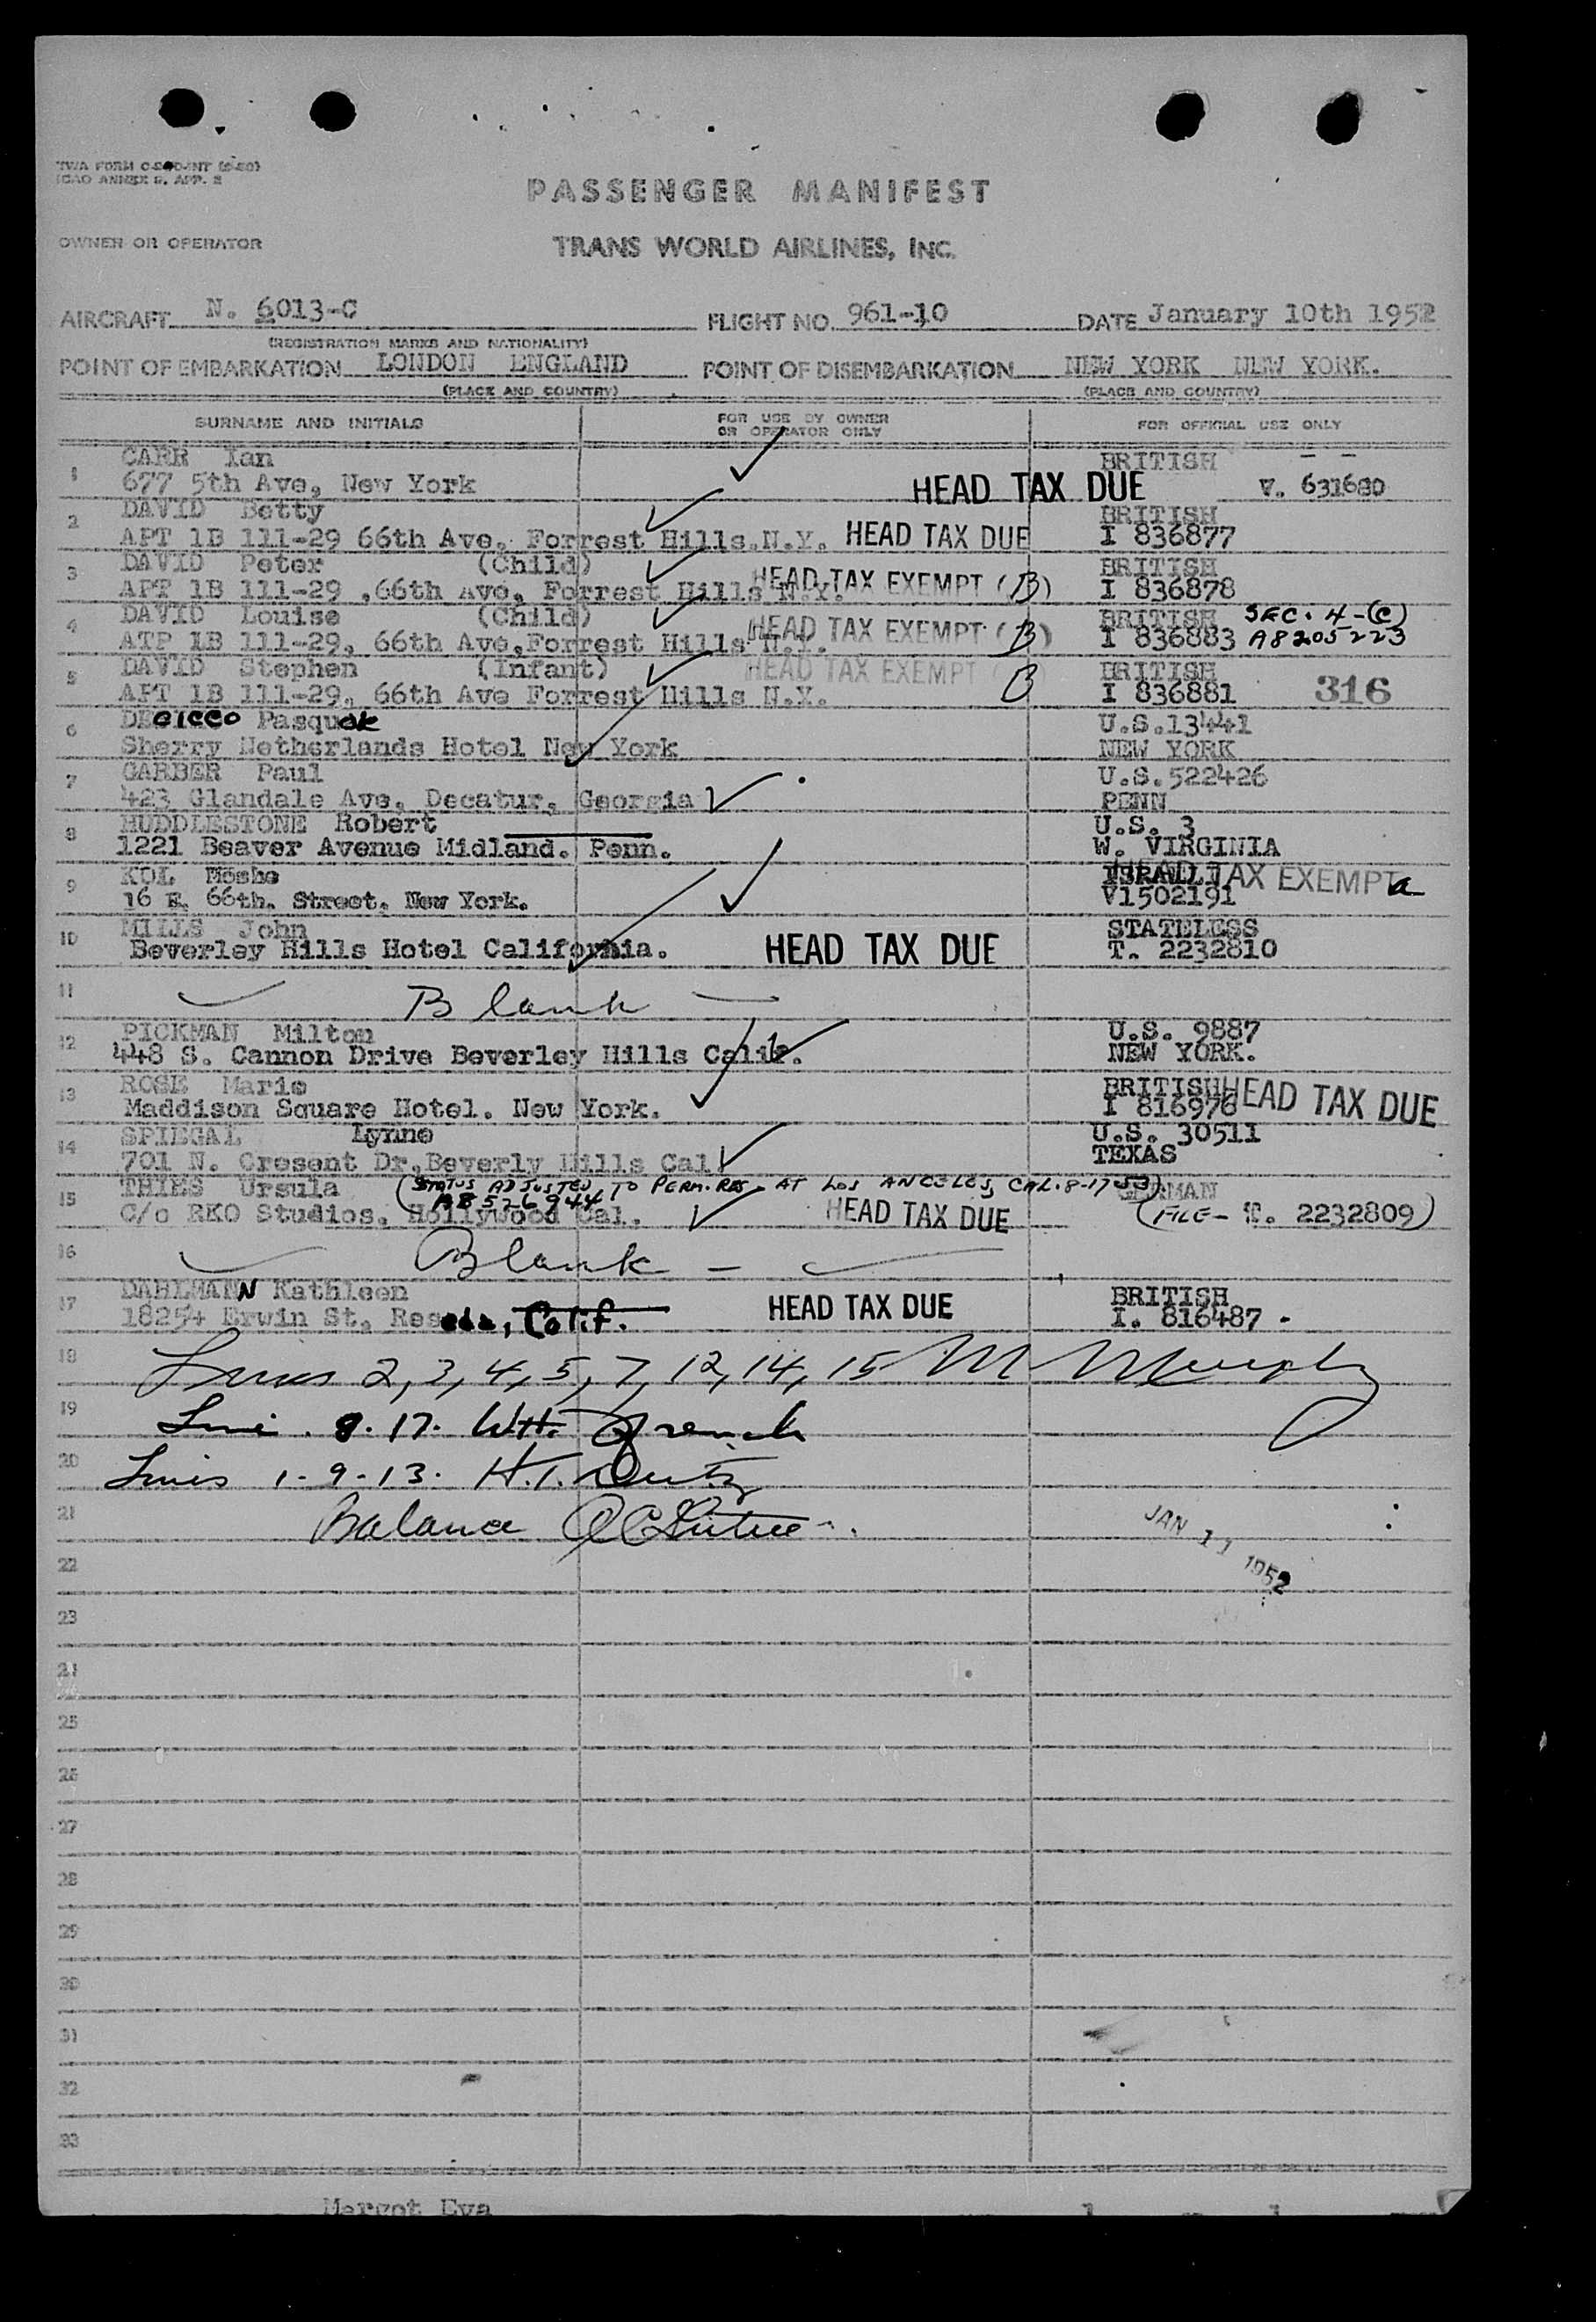 TWA FORM
ICAO ANNEX 9, APP. 2
PASSENGER MANIFEST
OWNER OR OPERATOR
TRANS WORLD AIRLINES, INC.
AIRCRAFT N. 6013-C FLIGHT NO. 961-10 DATE January 10th 1952
(REGISTRATION MARKS AND NATIONALITY)
POINT OF EMBARKATION LONDON ENGLAND POINT OF DISEMBARKATION NEW YORK NEW YORK.
(PLACE AND COUNTRY) (PLACE AND COUNTRY)
SURNAME AND INITIALS FOR USE BY OWNER OR OPERATOR ONLY FOR OFFICIAL USE ONLY
1 CARR Ian BRITISH - -
677 5th Ave, New York HEAD TAX DUE V. 631680
2 DAVID Betty BRITISH
APT 1B 111-29 66th Ave. Forrest Hills.N.Y. HEAD TAX DUE I 836877
3 DAVID Peter (Child) BRITISH
APT 1B 111-29 ,66th Ave, Forrest Hills N.Y. HEAD TAX EXEMPT (B) I 836878
4 DAVID Louise (Child) BRITISH SEC. 4-(C)
ATP 1B 111-29, 66th Ave,Forrest Hills N.Y. HEAD TAX EXEMPT (B) I 836883 A8205223
5 DAVID Stephen (Infant) HEAD TAX EXEMPT BRITISH
APT 1B 111-29, 66th Ave Forrest Hills N.Y. B I 836881 316
6 DECICCO Pasquale U.S.13441
Sherry Netherlands Hotel New York NEW YORK
7 GARBER Paul U.S.522426
423 Glandale Ave, Decatur, Georgia PENN
8 HUDDLESTONE Robert U.S. 3
1221 Beaver Avenue Midland. Penn. W. VIRGINIA
9 KOL Moshe ISRAELI HEAD TAX EXEMPT a
16 E. 66th. Street. New York. V1502191
10 MILLS John STATELESS
Beverley Hills Hotel California. HEAD TAX DUE T. 2232810
11 Blank
12 PICKMAN Milton U.S. 9887
448 S. Cannon Drive Beverley Hills Calif. NEW YORK.
13 ROSE Marie BRITISH HEAD TAX DUE
Maddison Square Hotel. New York. I 816976
14 SPIEGAL Lynne U.S. 30511
701 N. Cresent Dr,Beverly Hills Cal TEXAS
15 THIES Ursula (STATUS ADJUSTED TO PERM. RES. AT LOS ANGELES, CAL. 8-17-53) GERMAN
A8526944
C/o RKO Studios, Hollywood Cal. HEAD TAX DUE (FILE- T. 2232809)
16 Blank -
17 DAHLMANN Kathleen BRITISH
18254 Erwin St, Reseda, Calif. HEAD TAX DUE I. 816487 -
18 Lines 2, 3, 4, 5, 7, 12, 14, 15 M Murphy
19 8.17.
20 Lines 1-9-13. H.T.
21 Balance
JAN 11 1952
22
23
24
25
26
27
28
29
30
31
32
33
Margot Eva